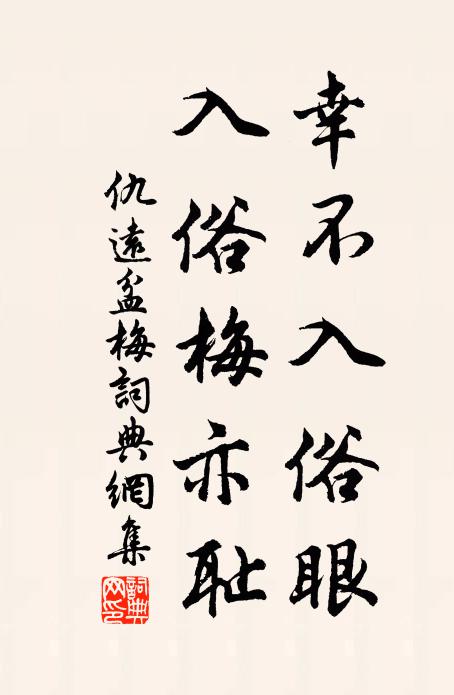 幸不入俗眼
入俗梅亦耻
仇遠盆梅詞典網集
詞典網印